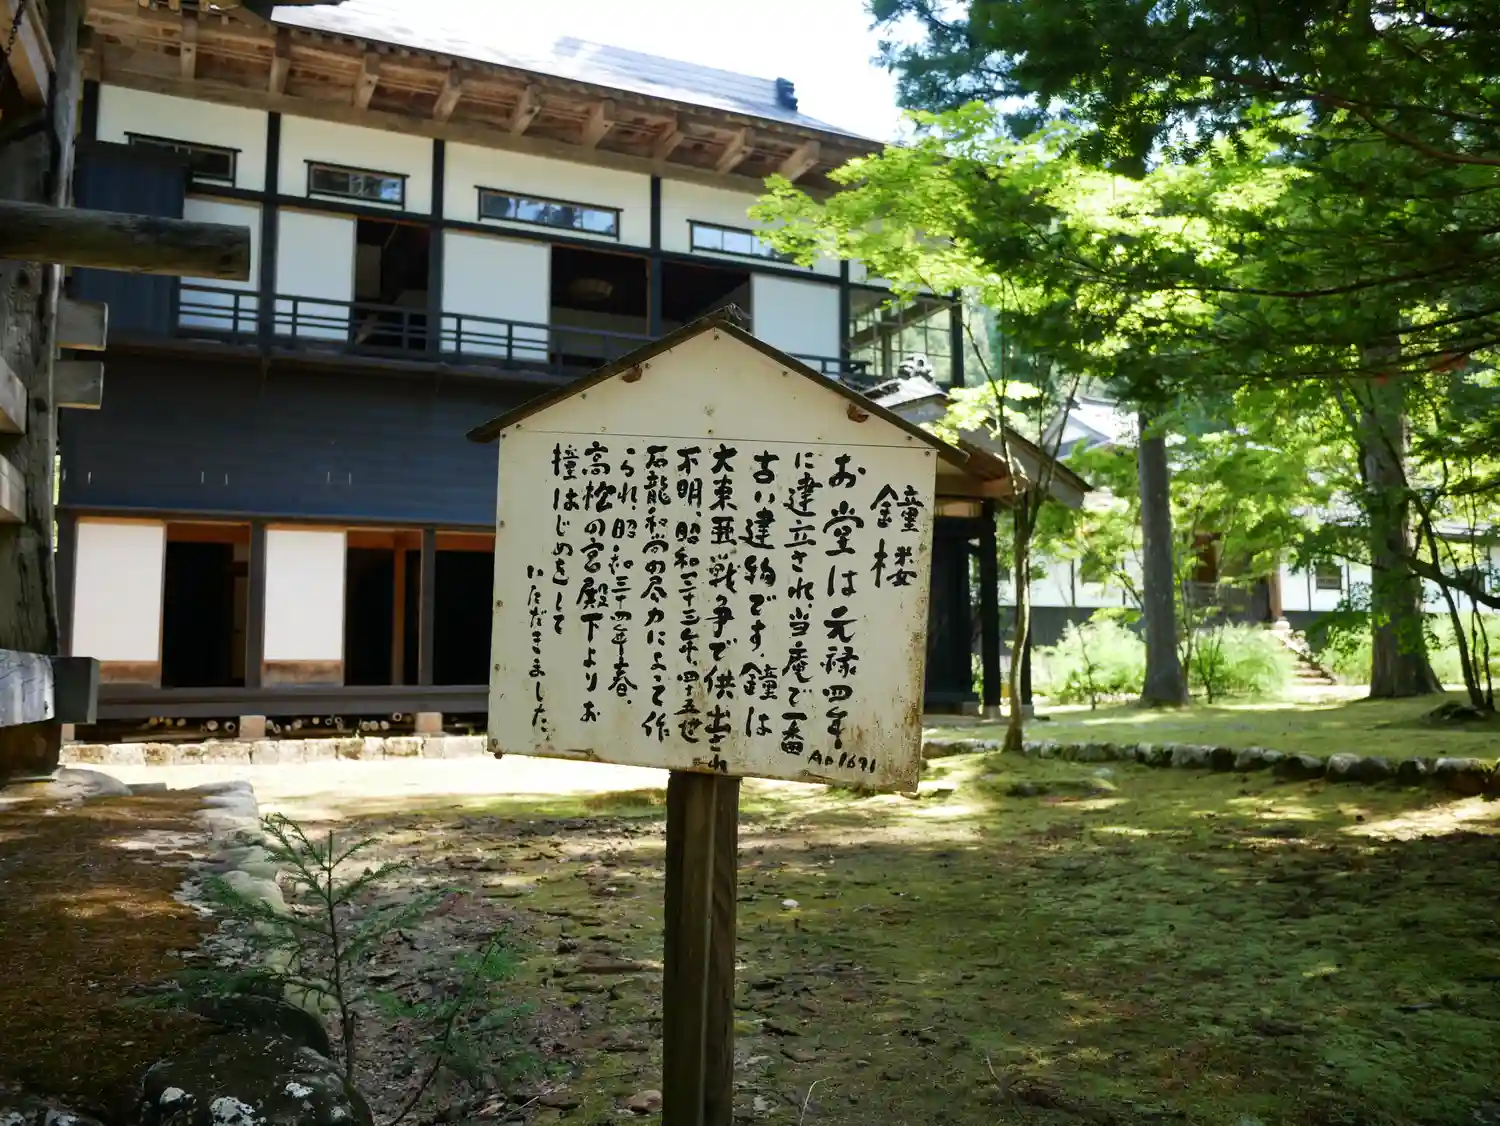 鐘楼
お堂は元禄四年
AD1691
に建立され、当庵で一番
古い建物です。鐘は
大東亜戦争で供出され
不明、昭和三十三年、四十五世
石龍和尚の尽力によって作
られ、昭和三十四年春、
高松の宮殿下よりお
撞はじめをして
いただきました。